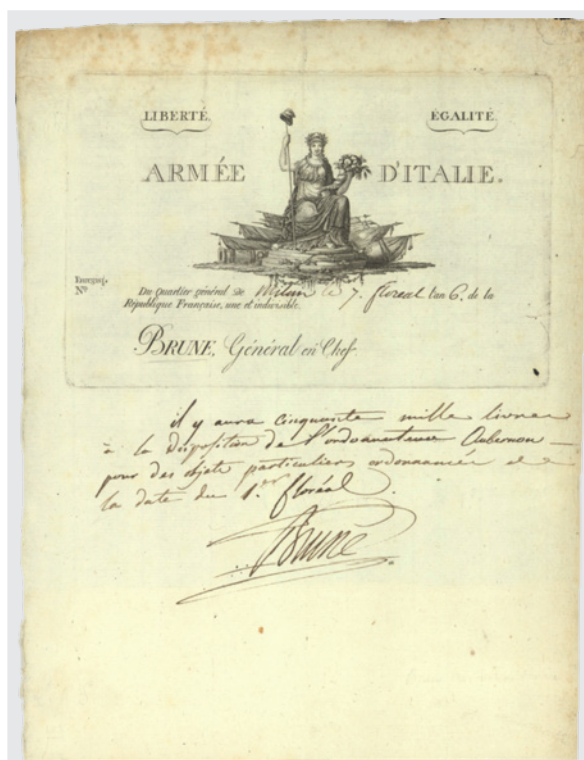 LIBERTÉ
ÉGALITÉ
ARMÉE D'ITALIE.
Enregist.
Nº
Du Quartier général de Milan le 7. floreal l'an 6.e de la
République Française, une et indivisible.
BRUNE, Général en Chef
il y aura cinquante mille livres
à la Disposition de l'ordonnateur Aubernon
pour des objets particuliers ordonnancés
la date du 1.er floréal.
Brune